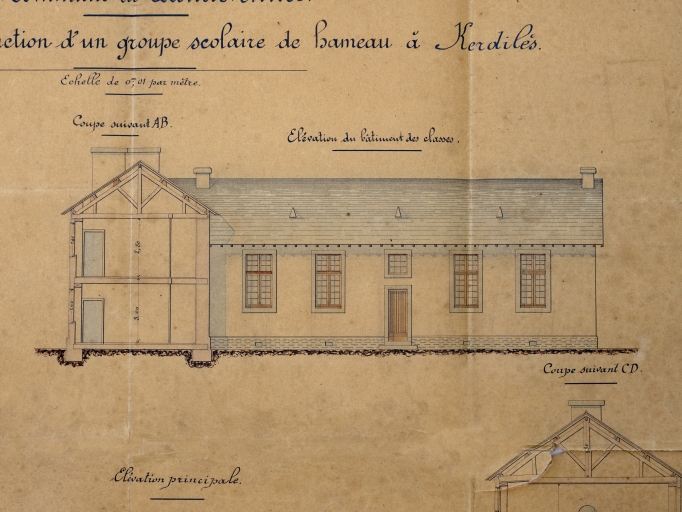 ction d'un groupe scolaire de hameau à Kerdilès.
Echelle de 0m,01 par mètre.
Coupe suivant AB.
Elévation du bâtiment des classes.
Coupe suivant CD.
Elévation principale.